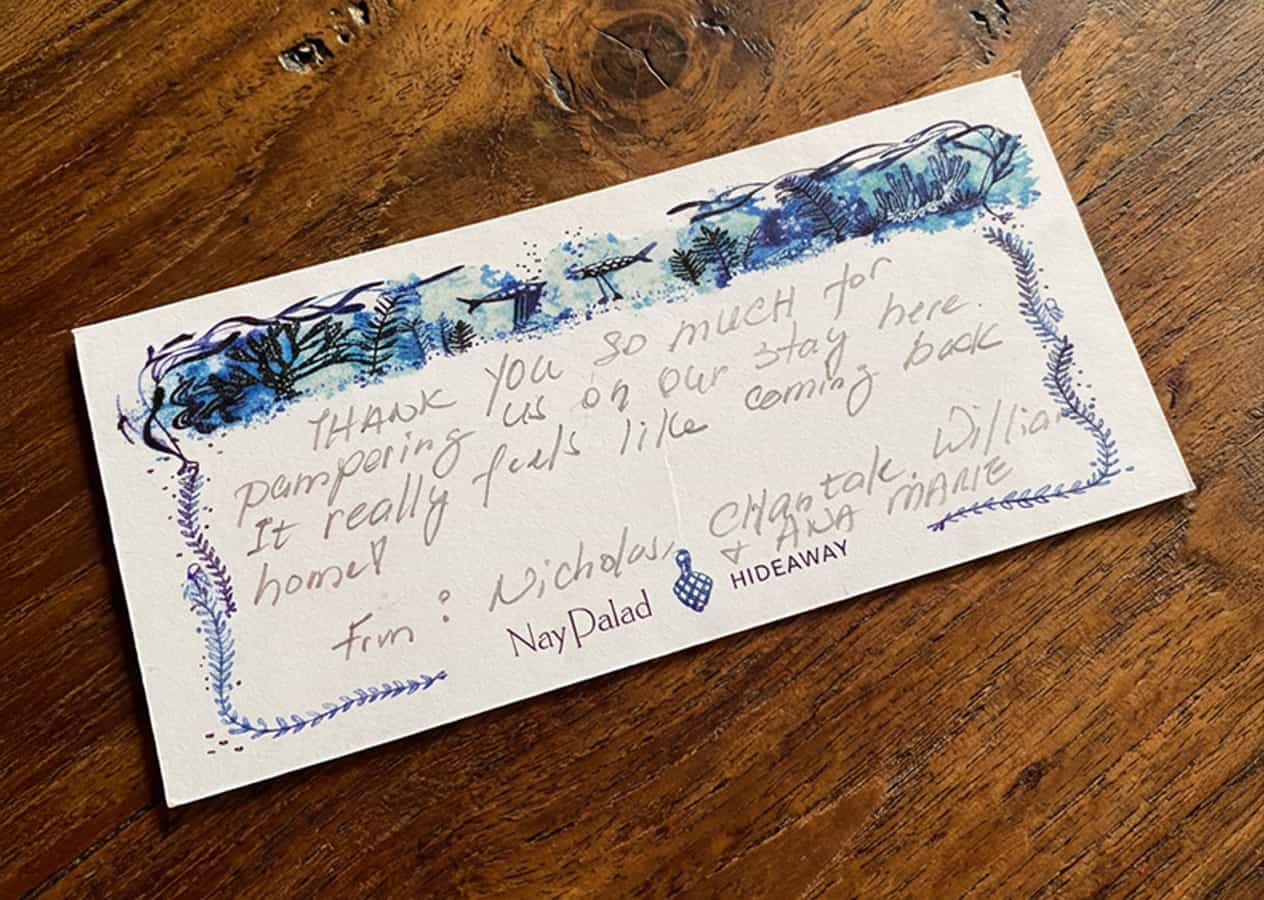 THANK you so mucH for
pampering us on our stay here.
It really feels like coming back
home!
Frm : Nicholas, CHantale, William
+ ANA MARIE
Nay Palad HIDEAWAY